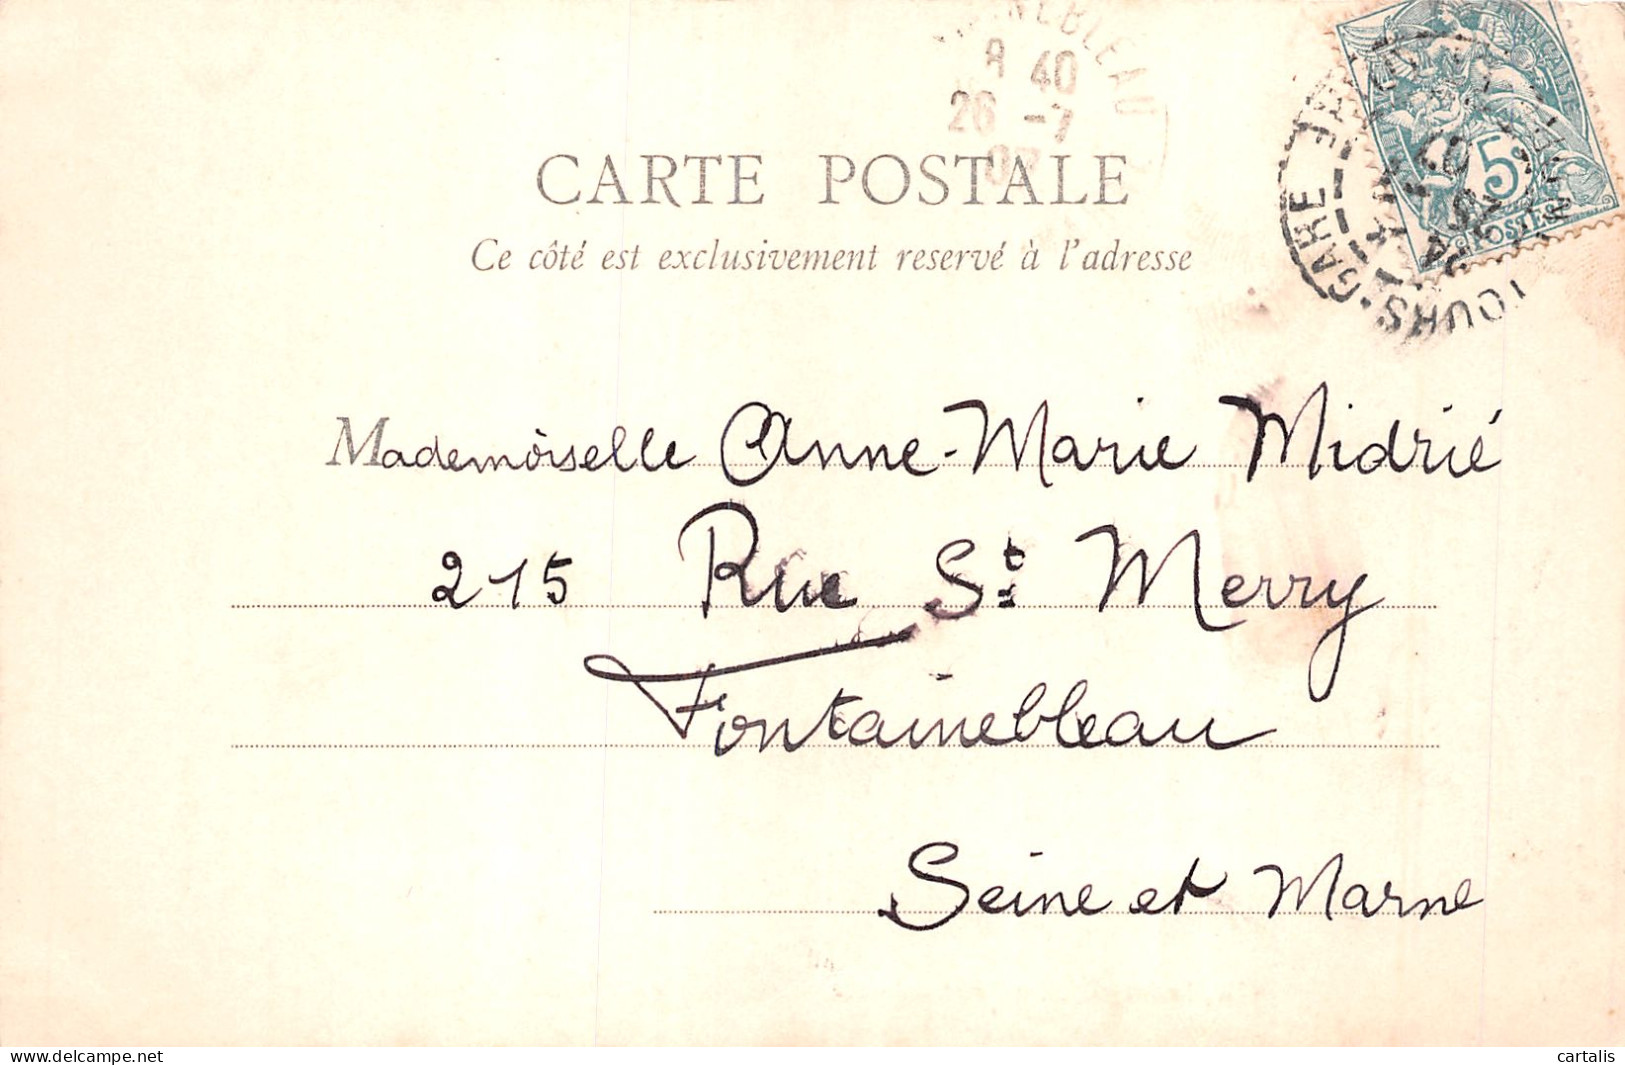 8 40
26 -7
CARTE POSTALE
Ce côté est exclusivement reservé à l'adresse
5
POSTES
TOURS-GARE
Mademoiselle Anne-Marie Midrié
215 Rue St Merry
Fontainebleau
Seine et Marne
www.delcampe.net
cartalis